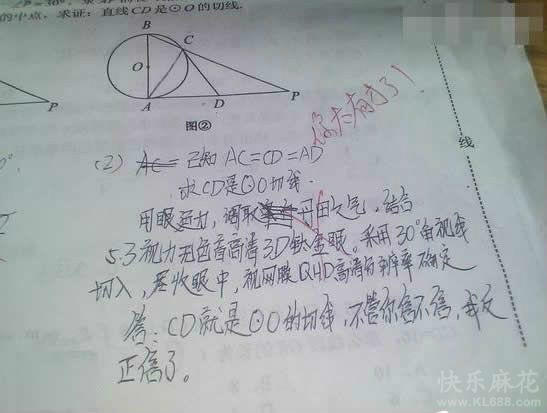 ∠P=30°,
的中点,求证:直线CD是⊙O的切线.
B
C
O
A
D
P
P
图②
你太有才了!
(2) AC= 已知 AC=CD=AD
求CD是⊙O切线.
用眼运力,调取丹田之气,结合
5.3视力无色盲高清3D钛金眼。采用30°角视线
切入,尽收眼中,视网膜QHD高清分辨率确定
答:CD就是⊙O的切线,不管你信不信,我反
正信了。
线
快乐麻花
www.KL688.com